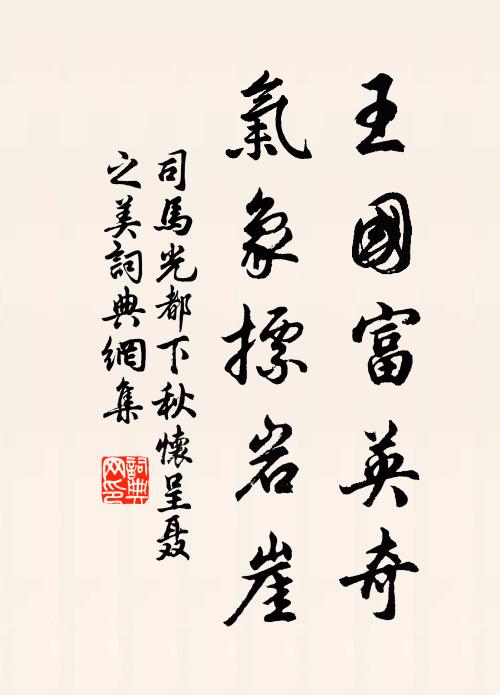 王國富英奇
氣象摽岩崖
司馬光都下秋懷呈聂
之美詞典網集
詞典
网印